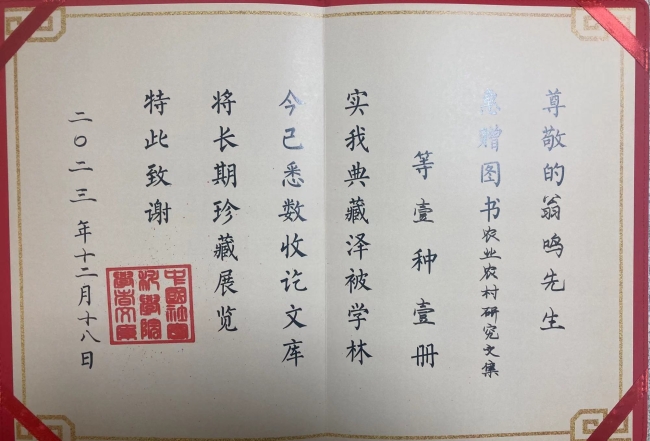 尊敬的翁鸣先生
惠赠图书农业农村研究文集
等壹种壹册
实我典藏泽被学林
今已悉数收讫文库
将长期珍藏展览
特此致谢
二〇二三年十二月十八日
中国社会科学院学者文库